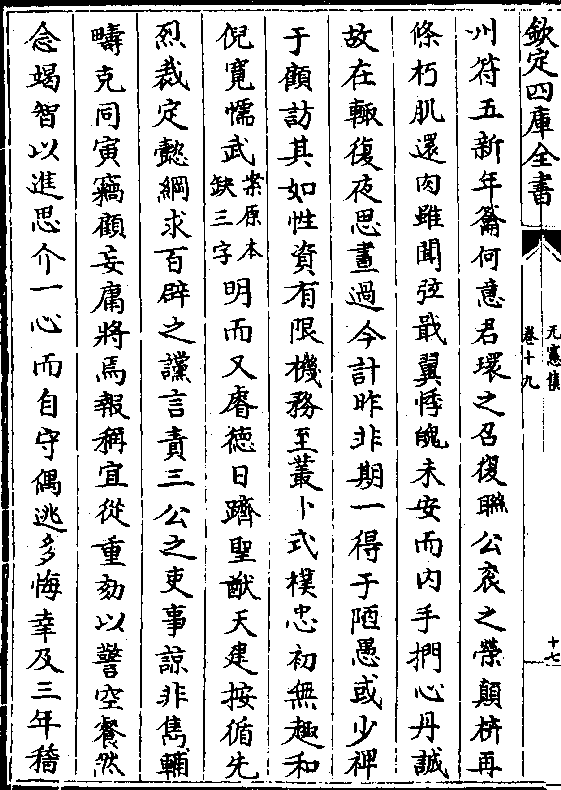 欽定四庫全書
元憲集
卷十九
十七
州符五新年籥何意君環之召復聯公衮之榮顛枿再
條朽肌還肉雖聞弦戢翼悸魄未安而内手捫心丹誠
故在輙復夜思晝過今計昨非期一得于陋愚或少禆
于顧訪其如性資有限機務至叢卜式樸忠初無趣和
倪寛懦武案原本缺三字明而又睿德日躋聖猷天建按循先
烈裁定懿綱求百辟之讜言責三公之吏事諒非雋輔
疇克同寅竊顧妄庸將焉報稱宜從重劾以警空餐然
念竭智以進思介一心而自守偶逃多悔幸及三年稽